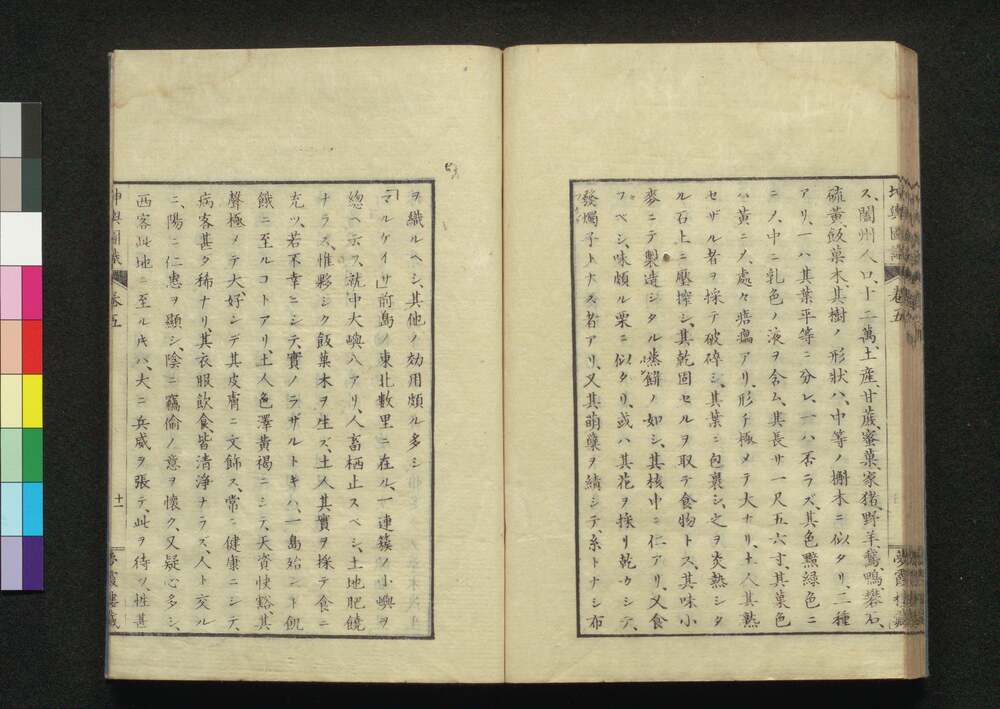 ス、闔州人口、十二萬、土産、甘蔗、蜜菓、家猪、野羊、鵞、鴨、礬石、
硫黄、飯菓木、其樹ノ形狀ハ、中等ノ槲木ニ似タリ、二種
アリ、一ハ其葉平等ニ分レ、一ハ否ラズ、其色黯緑色ニ
ニノ、中ニ乳色ノ液ヲ含ム、其長サ一尺五六寸、其菓色
ハ黄ニノ、處々痦㿔アリ、形チ極メテ大ナリ、土人其熟
セザル者ヲ採テ破碎シ、其葉ニ包裹シ、之ヲ炎熱シタ
ル石上ニ壓搾シ、其乾固セルヲ取テ食物トス、其味小
麥ニテ製造シタル蒸餅ノ如シ、其核中ニ仁アリ、又食
フベシ、味頗ル栗ニ似タリ、或ハ其花ヲ採リ乾カシテ、
發燭子トナス者アリ、又其萌蘖ヲ績シテ、糸トナシ布
坤輿圖識 卷五
夢霞樓藏
ヲ織ルヘシ、其他ノ効用頗ル多シ
「マルケイサ」前島ノ東北數里ニ在ル、一連簇ノ小嶼ヲ
總ヘ云フ、就中大嶼八アリ、人畜栖止スベシ、土地肥饒
ナラス、惟夥シク飯菓木ヲ生ズ、土人其實ヲ採テ食ニ
充ツ、若不幸ニシテ、實ノラザルトキハ、一島殆ント飢
餓ニ至ルコトアリ、土人色澤黄褐ニシテ、天資快豁、其
聲極メテ大、好ンデ其皮膚ニ文飾ス、常ニ健康ニシテ、
病客甚タ稀ナリ、其衣服飲食、皆清淨ナラズ、人ト交ル
ニ、陽ニ仁惠ヲ顯シ、陰ニ竊偷ノ意ヲ懷ク、又疑心多シ、
西客此地ニ至ル𪜈ハ、大ニ兵威ヲ張テ、此ヲ待ツ、性甚
坤輿圖識 卷五 十一
夢霞樓藏